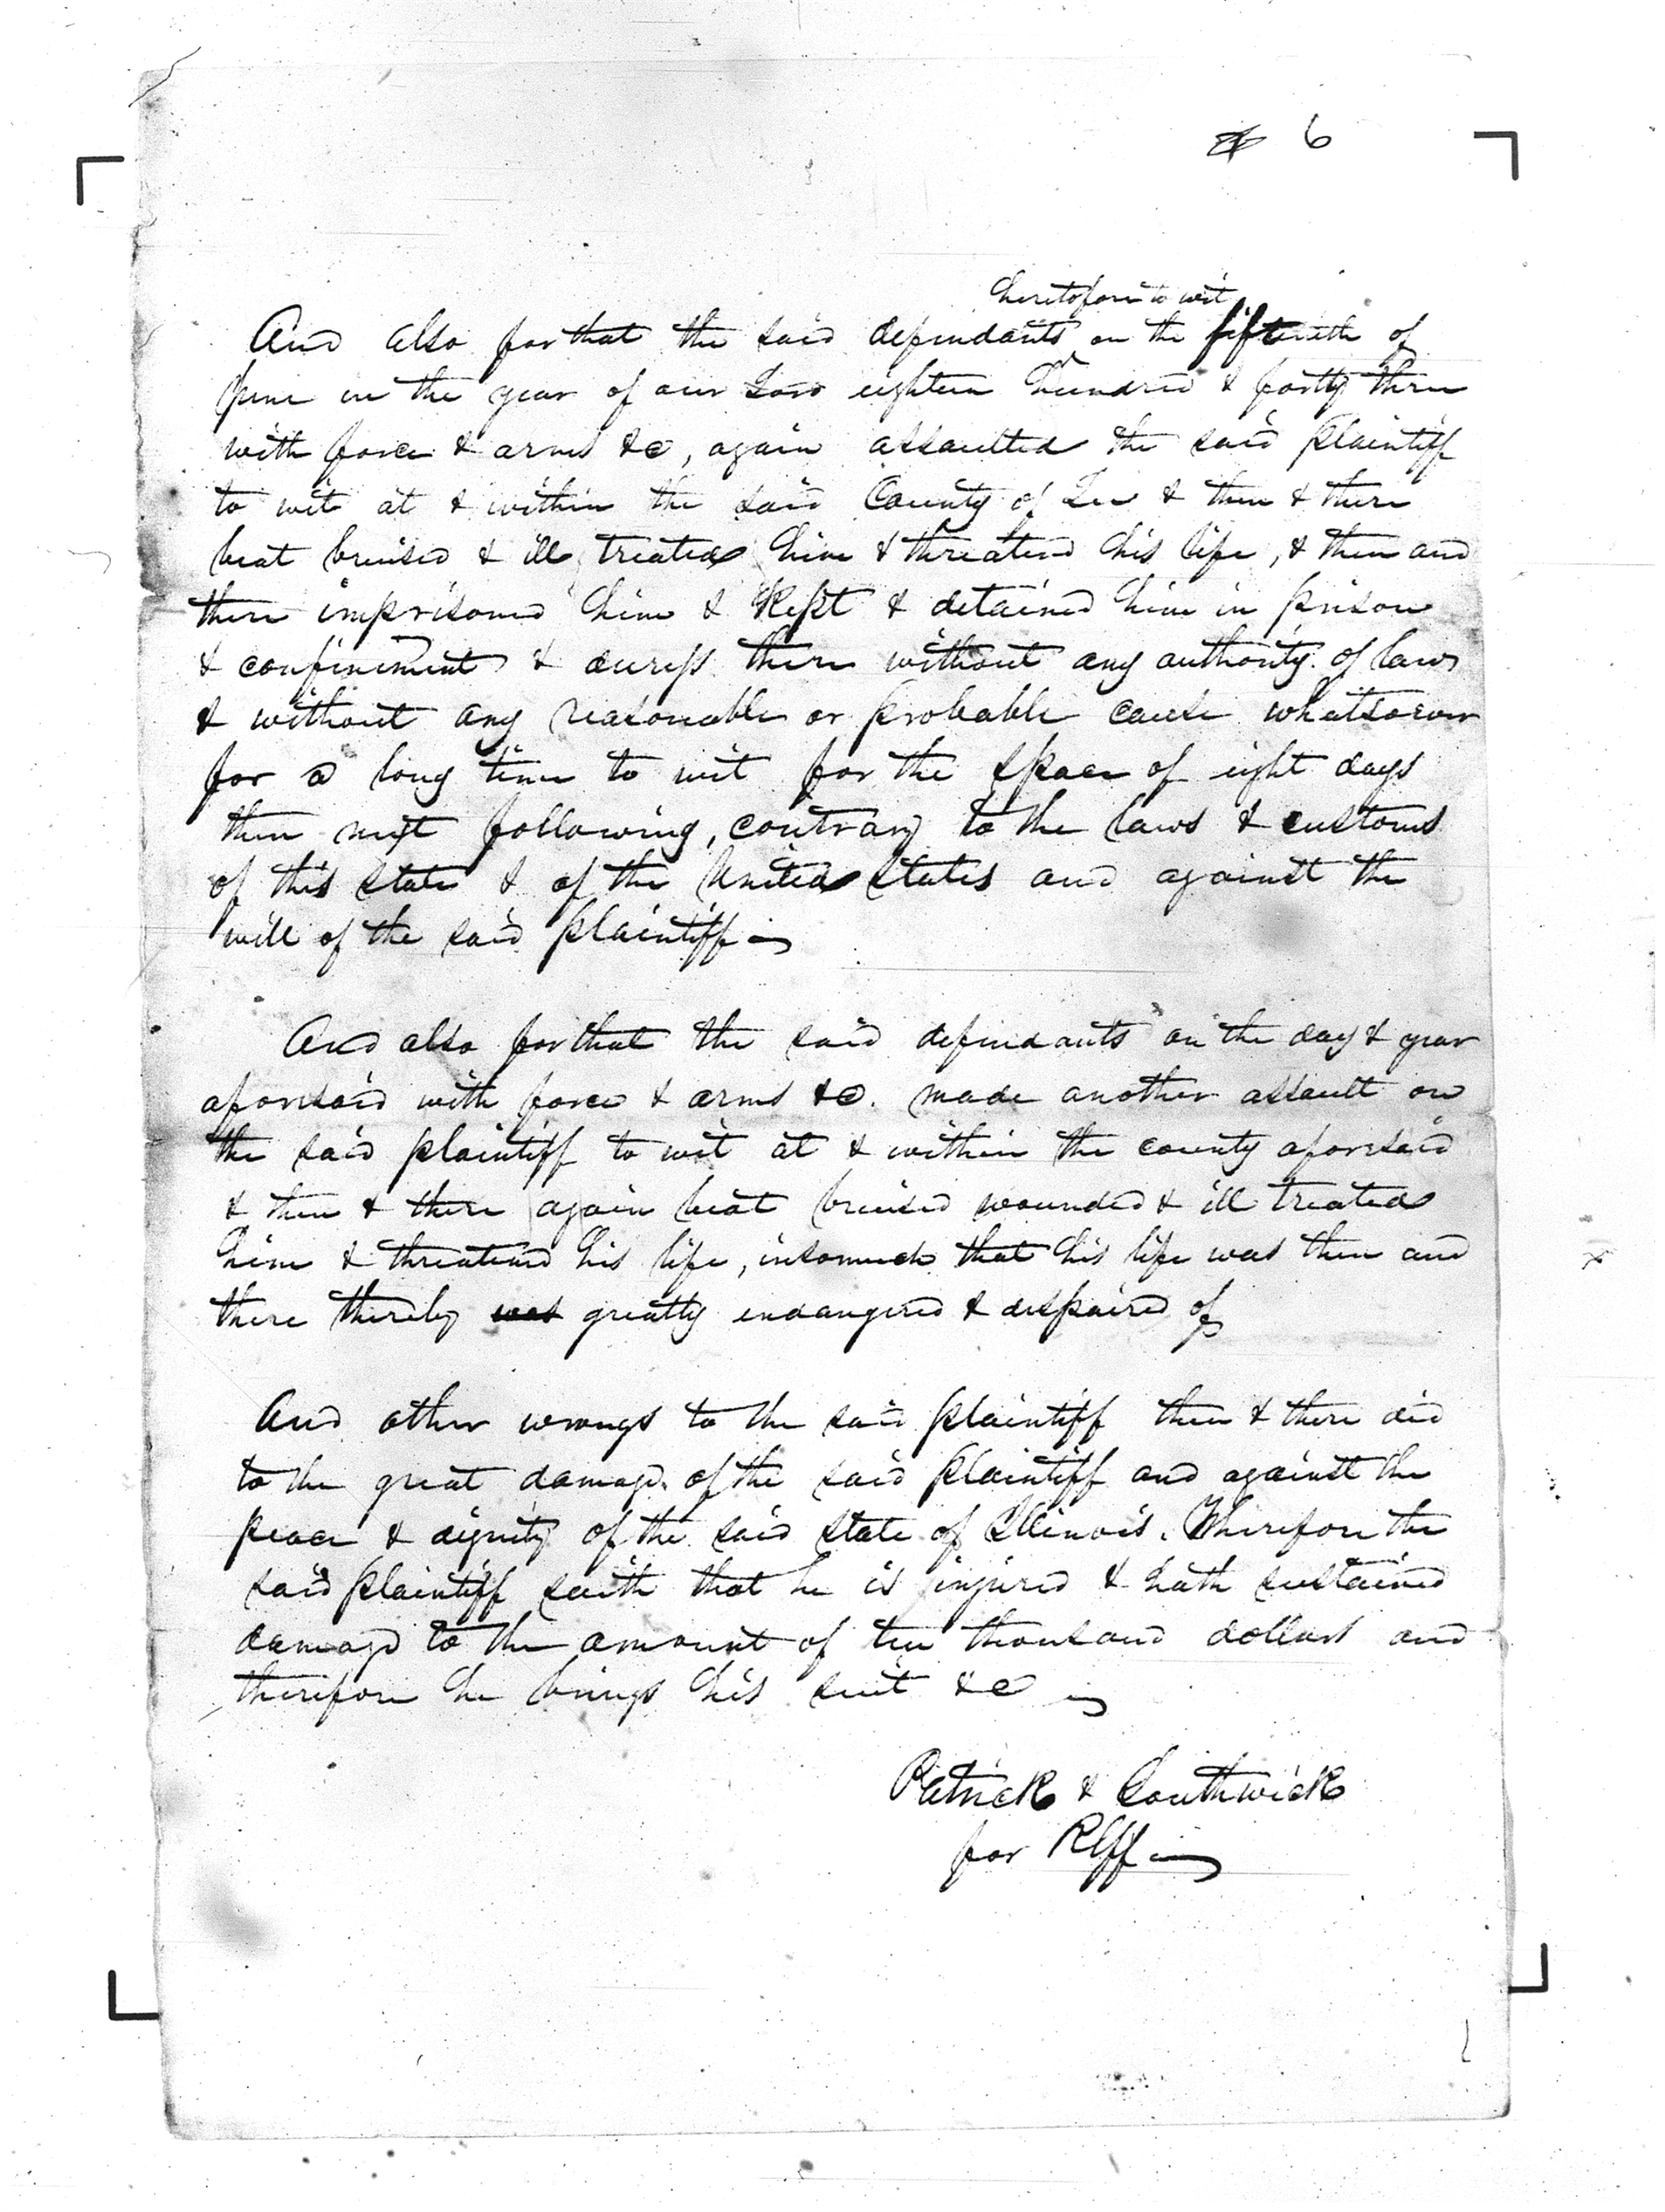 6
heretofore to wit
And also for that the said defendants on the fifteenth of
June in the year of our Lord eighteen hundred & forty three
with force & arms &c, again assaulted the said plaintiff
to wit at & within the said County of Lee & then & there
beat bruised & ill treated him & threatend his life, & then and
there imprisoned him & kept & detained him in prison
& confinement & duress there without any authority of law
& without any reasonable or probable cause whatsoever
for a long time to wit for the space of eight days
then next following, contrary to the laws & customs
of this State & of the United States and against the
will of the said plaintiff
And also for that the said defendants on the day & year
aforesaid with force & arms &c. made another assault on
the said plaintiff to wit at & within the county aforesaid
& then & there again beat bruised wounded & ill treated
him & threatend his life, insomuch that his life was then and
there thereby was greatly endangered & despaired of
And other wrongs to the said plaintiff then & there did
to the great damage of the said plaintiff and against the
peace & dignity of the said State of Illinois. Wherefore the
said plaintiff saith that he is injured & hath sustained
damage to the amount of ten thousand dollars and
therefore he brings his suit &c
Patrick & Southwick
for Plff